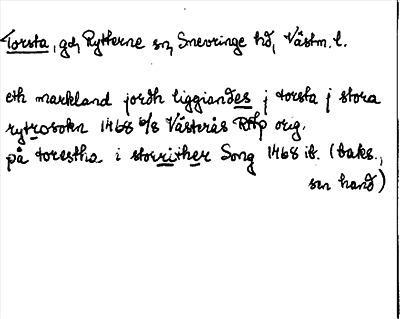 Torsta, gd, Rytterne sn, Snevringe hd, Västm. l.
eth markland jordh liggiandes j torsta j stora
rytrosokn 1468 6/8 Västerås RAp orig.
på torestha i storrither Song 1468 ib. (baks.,
sen hand)